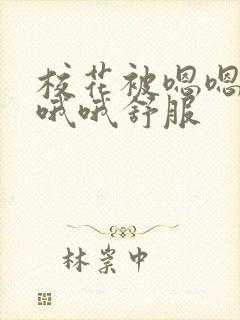 校花被嗯嗯
哦哦舒服
林岽中